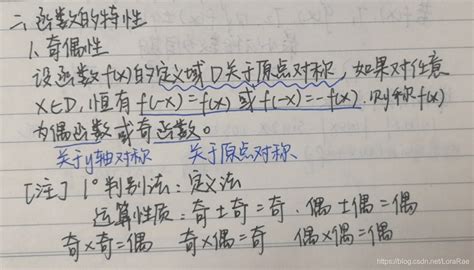 二、函数的特性
1、奇偶性
设函数f(x)的定义域D关于原点对称,如果对任意
x∈D,恒有f(-x)=f(x)或f(-x)=-f(x).则称f(x)
为偶函数或奇函数。
关于y轴对称 关于原点对称、
[注] 1°判别法:定义法
运算性质:奇±奇=奇.偶±偶=偶
奇×奇=偶 奇×偶=奇 偶×偶=偶
https://blog.csdn.net/LoraRae